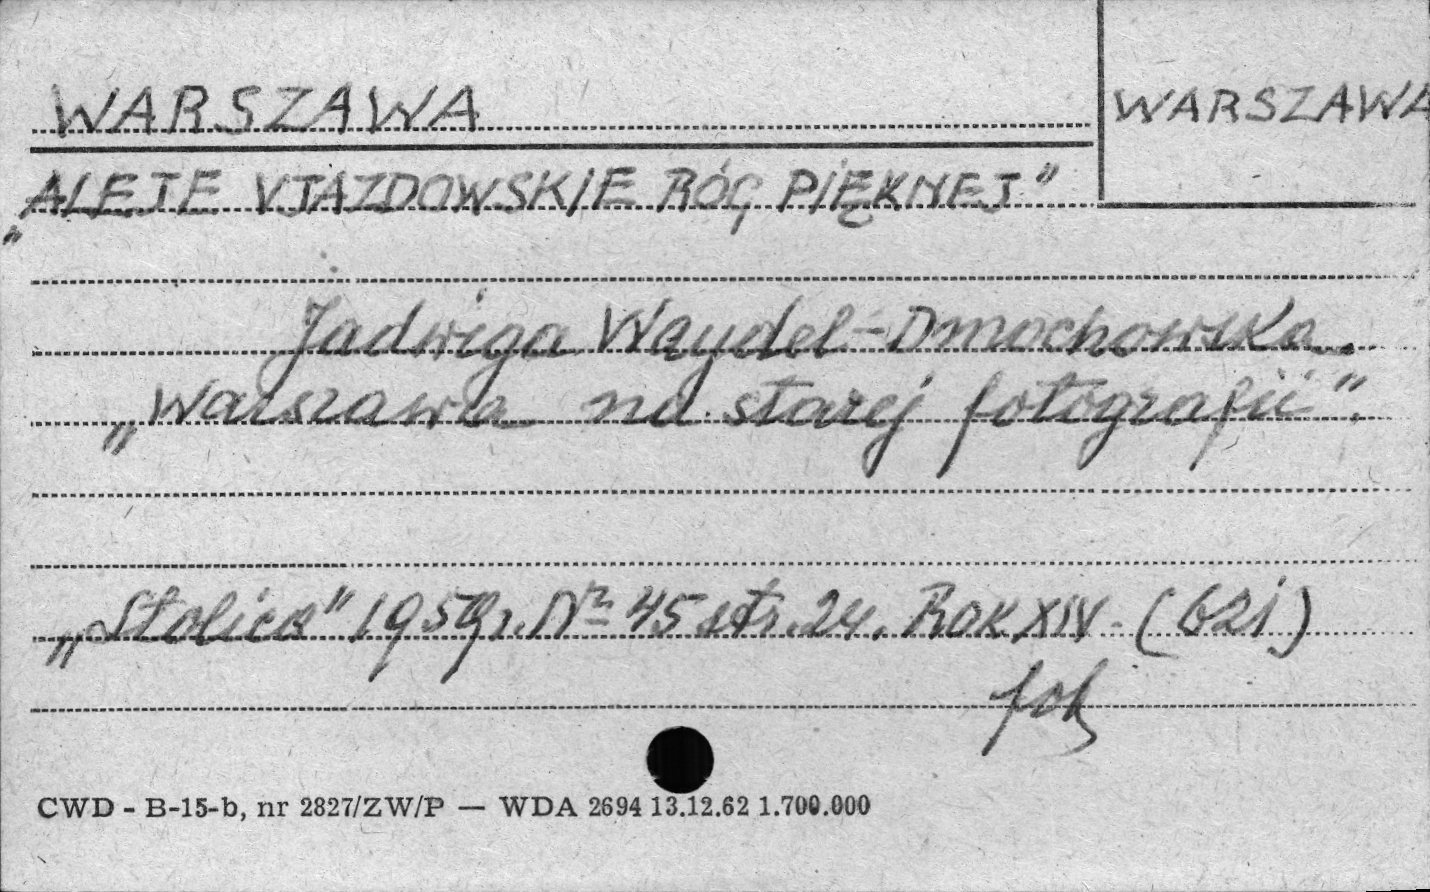 WARSZAWA
WARSZAWA
„ALEJE UJAZDOWSKIE RÓG PIĘKNEJ"
Jadwiga Waydel-Dmochowska.
„Warszawa na starej fotografii".
„Stolica" 1959r. Nr 45 str. 24. Rok XIV (621)
fot
CWD - B-15-b, nr 2827/ZW/P — WDA 2694 13.12.62 1.700.000